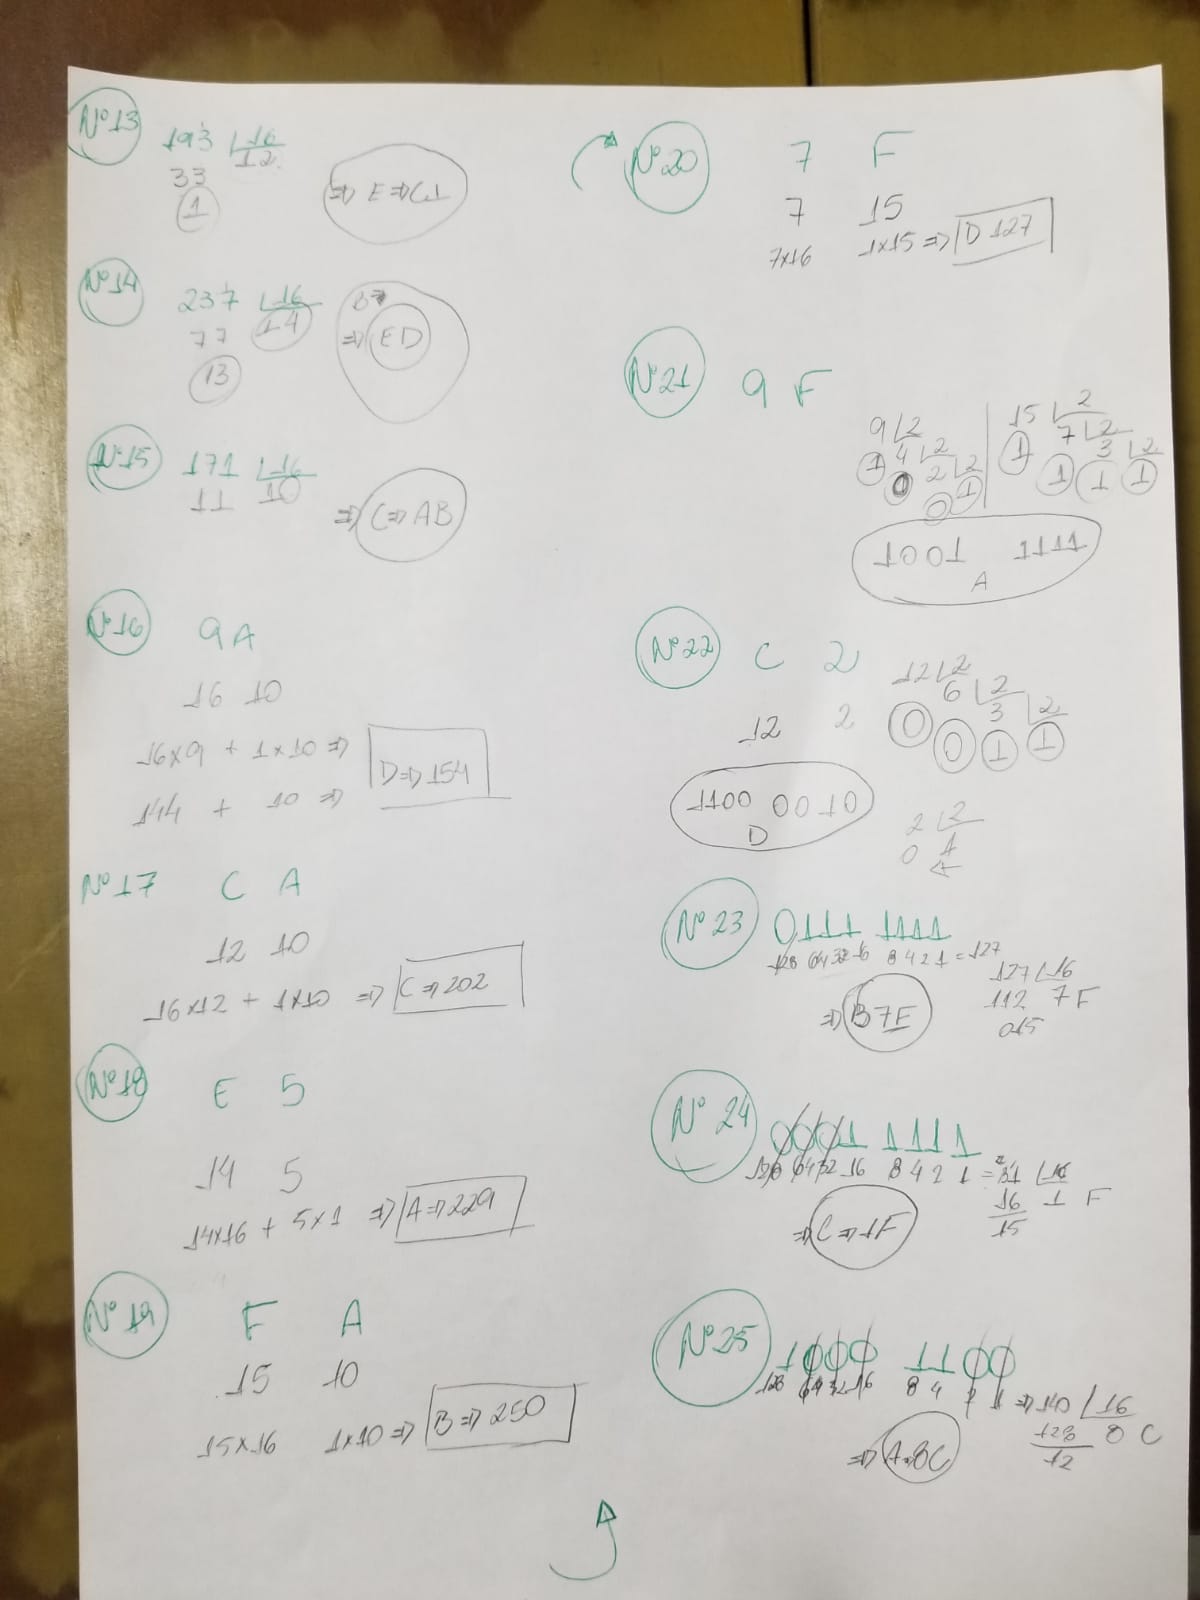 Nº13
193 16
33 12
1
⇒ E ⇒ C1
Nº14
237 16
77 14
13
B⇒
⇒ ED
Nº15
171 16
11 10
⇒ C ⇒ AB
Nº16 9 A
16 10
16x9 + 1x10 ⇒
144 + 10 ⇒
D ⇒ 154
Nº17 C A
12 10
16x12 + 1x10 ⇒ C ⇒ 202
Nº18 E 5
14 5
14x16 + 5x1 ⇒ A ⇒ 229
Nº19 F A
15 10
15x16 1x10 ⇒ B ⇒ 250
Nº20 7 F
7 15
7x16 1x15 ⇒ D 127
Nº21 9 F
9 2 15 2
4 2 7 2
1 2 2 1 3 2
0 1 1 1 1
0
1001 1111
A
Nº22 C 2
12 2
12 2
6 2
3 2
0 0 1 1
1100 0010
D
2 2
0 1
Nº23 0111 1111
128 64 32 16 8 4 2 1 = 127
127 16
112 7 F
015
⇒ B 7F
Nº24 0001 1111
128 64 32 16 8 4 2 1 = 31 16
16 1 F
15
⇒ C ⇒ 1F
Nº25 1000 1100
128 64 32 16 8 4 2 1 ⇒ 140 16
128 8 C
12
⇒ A ⇒ 8C